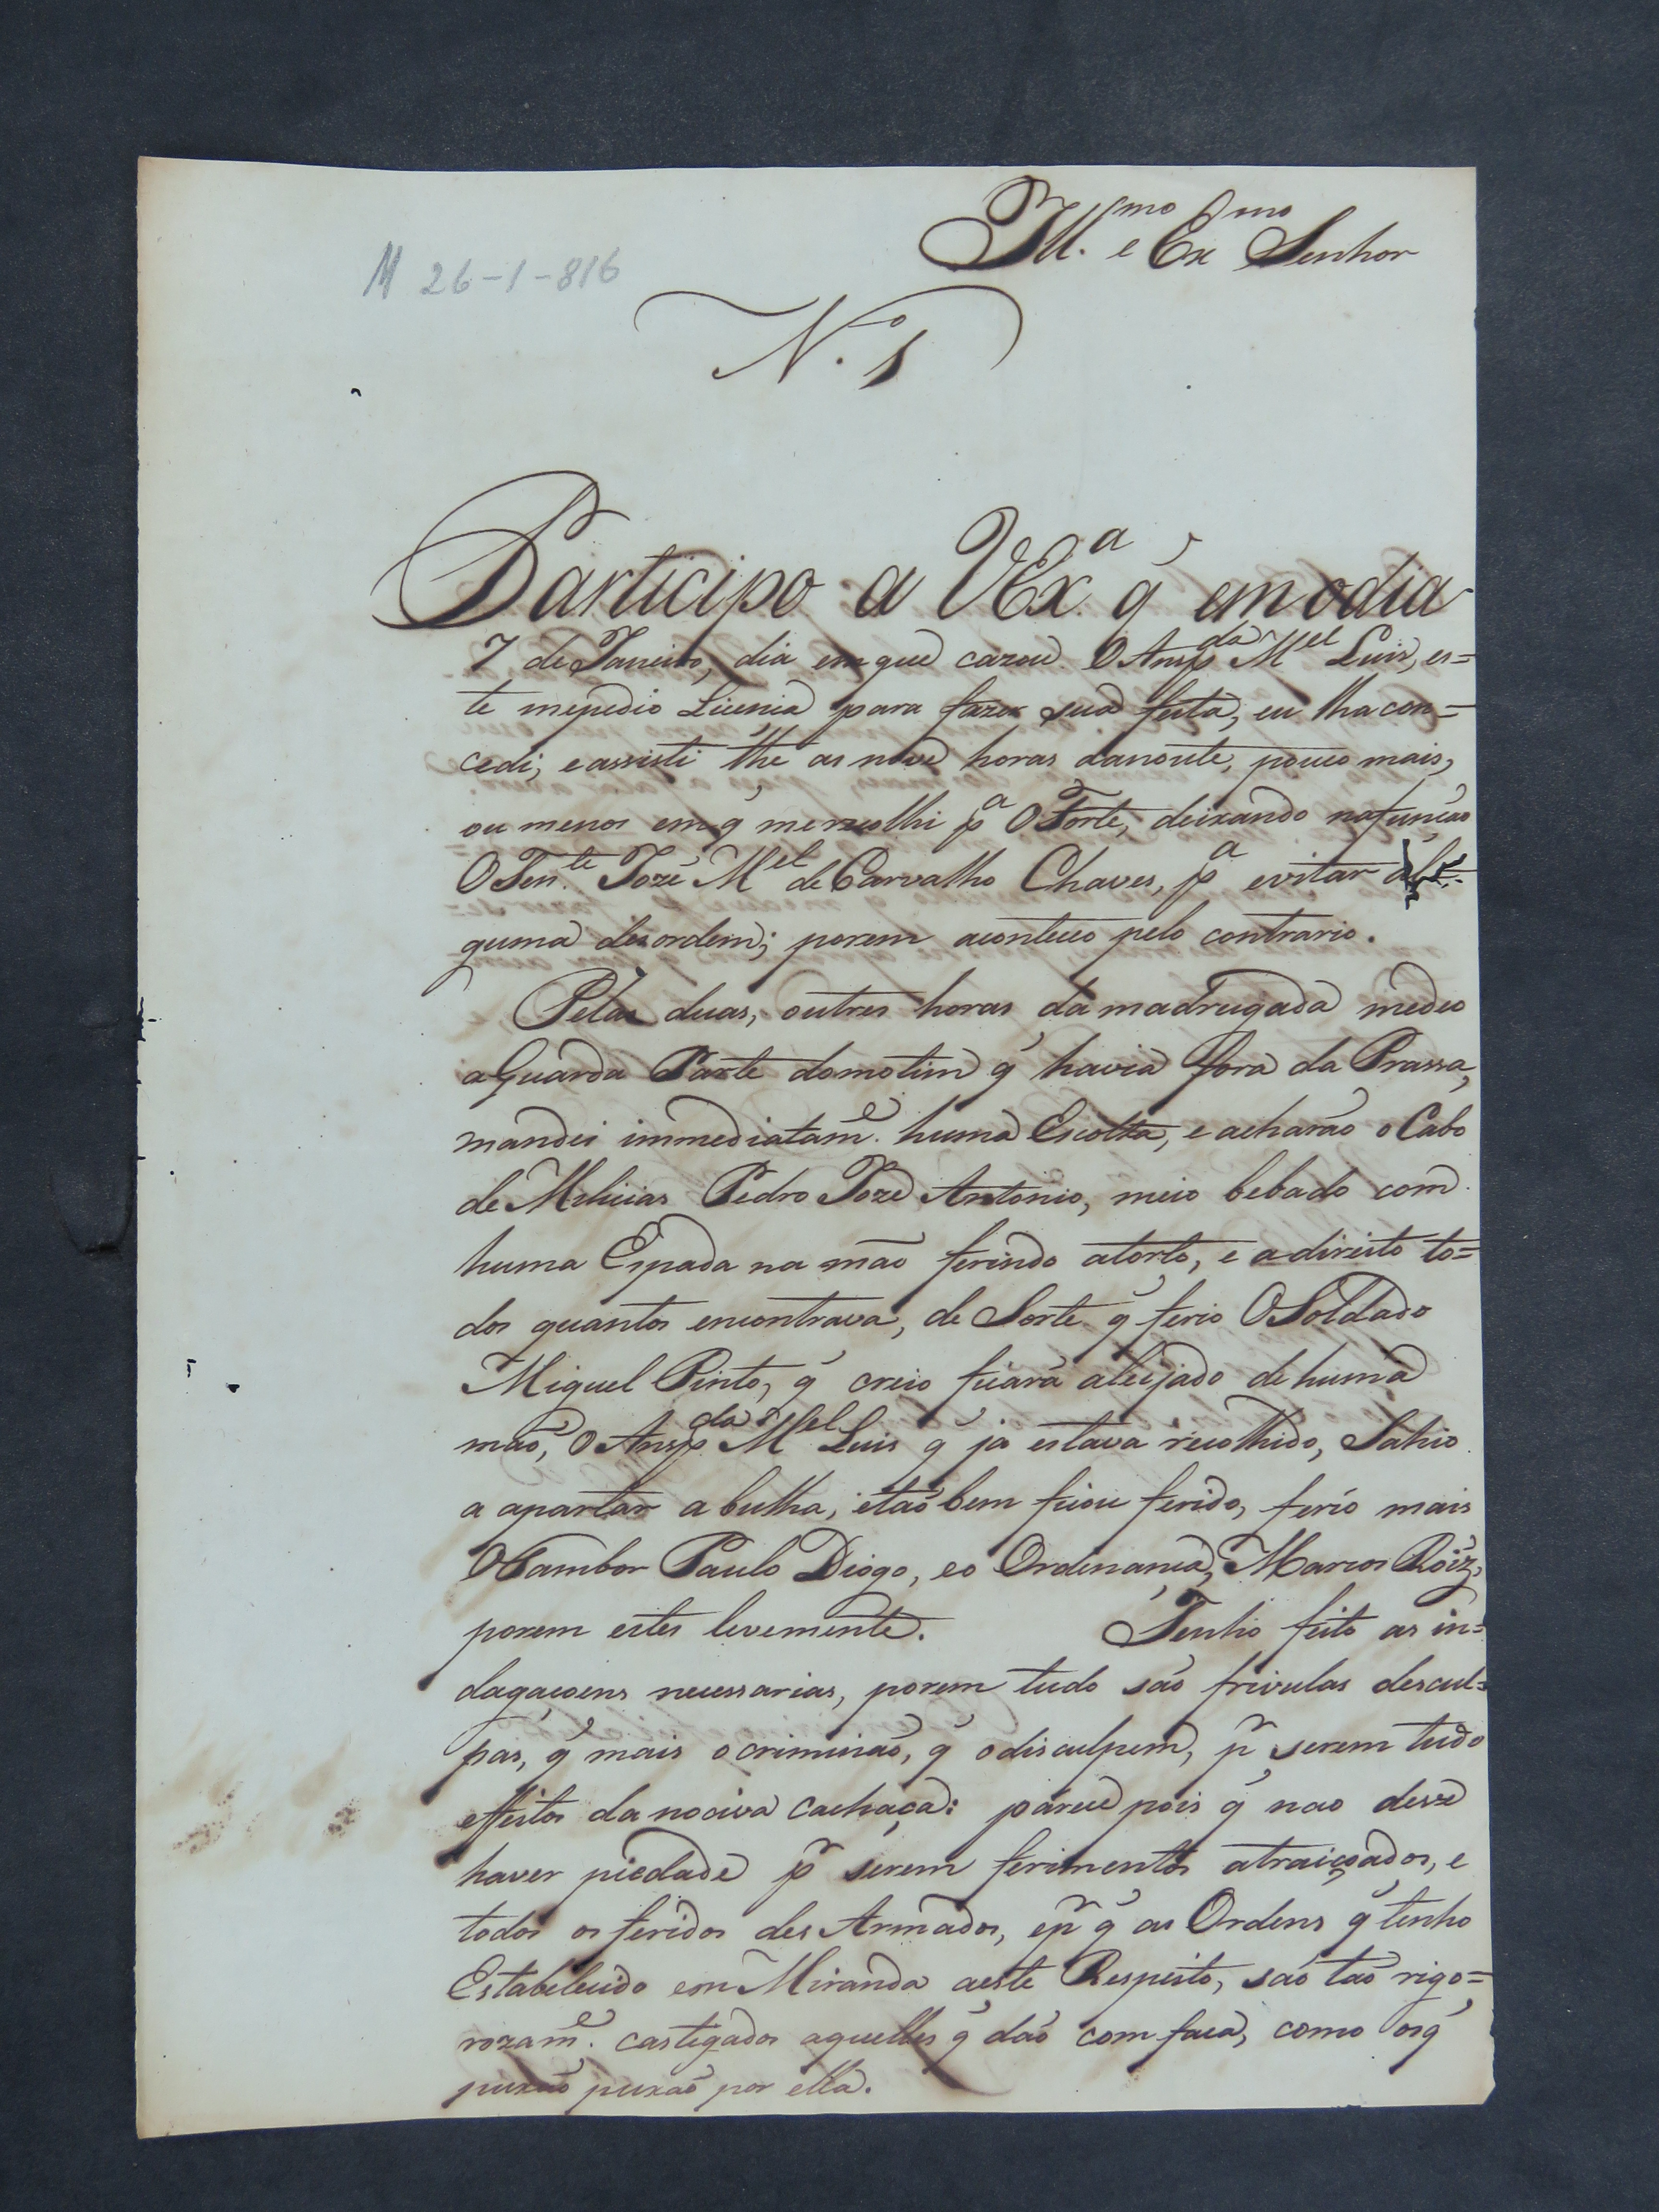 Ill.mo e Ex mo Senhor
M 26-1-816
N.o 1
Participo a VEx.a q̃ em odia
7 de Janeiro, dia em que cazou O Ansp.da M.el Luis, es=
te mepedio Licensa para fazer sua festa, eu lha con=
cedi, e assisti thé as nove horas danoute, pouco mais,
ou menos em q̃ merecolhi p.a O Forte, deixando nafunção
O Ten.te Jozé M.el de Carvalho Chaves, p.a evitar al=
guma desordem; porem aconteceo pelo contrario.
Pelas duas, outres horas da madrugada medeo
a Guarda Parte domotim q̃ havia fora da Prassa,
mandei immediatam.e huma Escolta, e acharão o Cabo
de Milicias Pedro Joze Antonio, meio bebado com
huma Espada na mão ferindo atorto, e a direito to=
dos quantos encontrava, de Sorte q̃ ferio O Soldado
Miguel Pinto, q̃ creio ficará aleijado de huma
mão, O Ansp.da M.el Luis q̃ já estava recolhido, Sahio
a apartar a bulha, etão bem ficou ferido, ferio mais
OTambor Paulo Diogo, eo Ordenança, Marcos Roiz,
porem estes levemente. Tenho feito as in=
dagaçoens necessarias, porem tudo são frivulas descul=
pas, q̃ mais ocriminão, q̃ odisculpem, p.r serem tudo
effeitos da nociva cachaça: parece pois q̃ nao deve
haver piedade p.r serem ferimentos atraiçoados, e
todos os feridos des Armados, ep.r q̃ as Ordens q̃ tenho
Estabelecido em Miranda aeste Respeito, são tão rigo=
rozam.e castigados aquelles q̃ dão com faca, como osq̃
puxão puxão por ella.